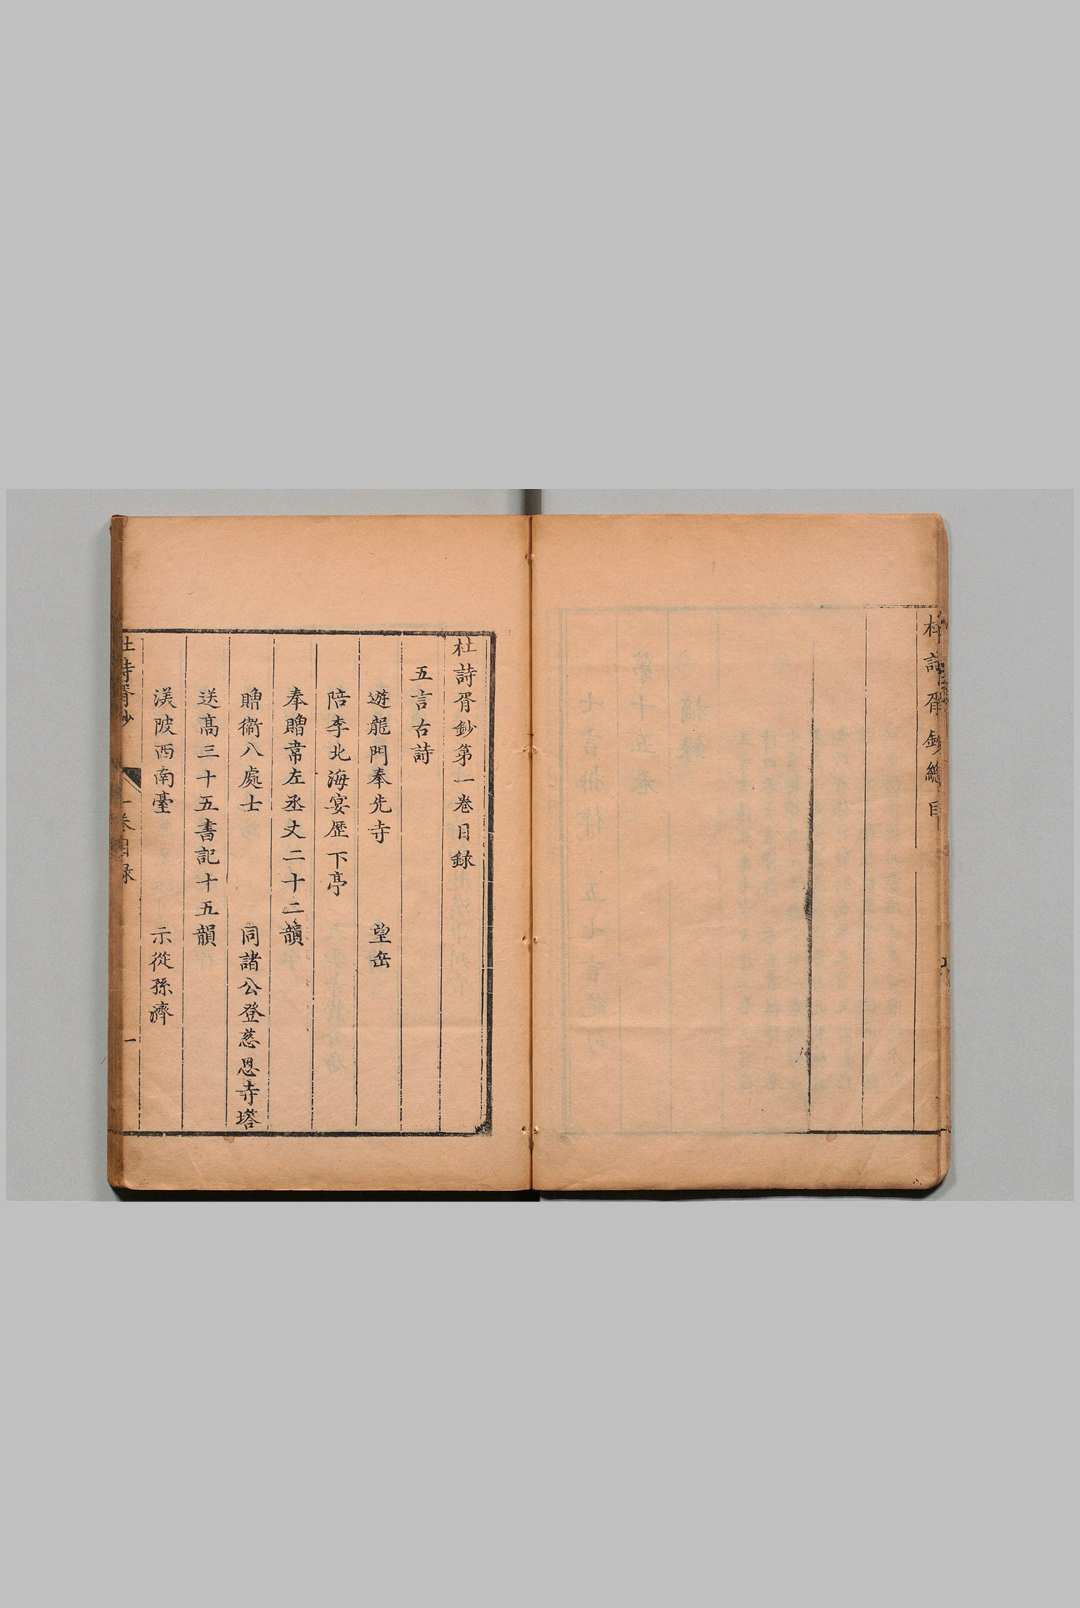 杜詩胥鈔總目
杜詩胥鈔第一卷目録
五言古詩
遊龍門奉先寺 望岳
陪李北海宴歷下亭
奉贈韋左丞丈二十二韻
贈衛八處士 同諸公登慈恩寺塔
送高三十五書記十五韻
渼陂西南臺 示從孫濟
杜詩胥鈔 一卷目録 一